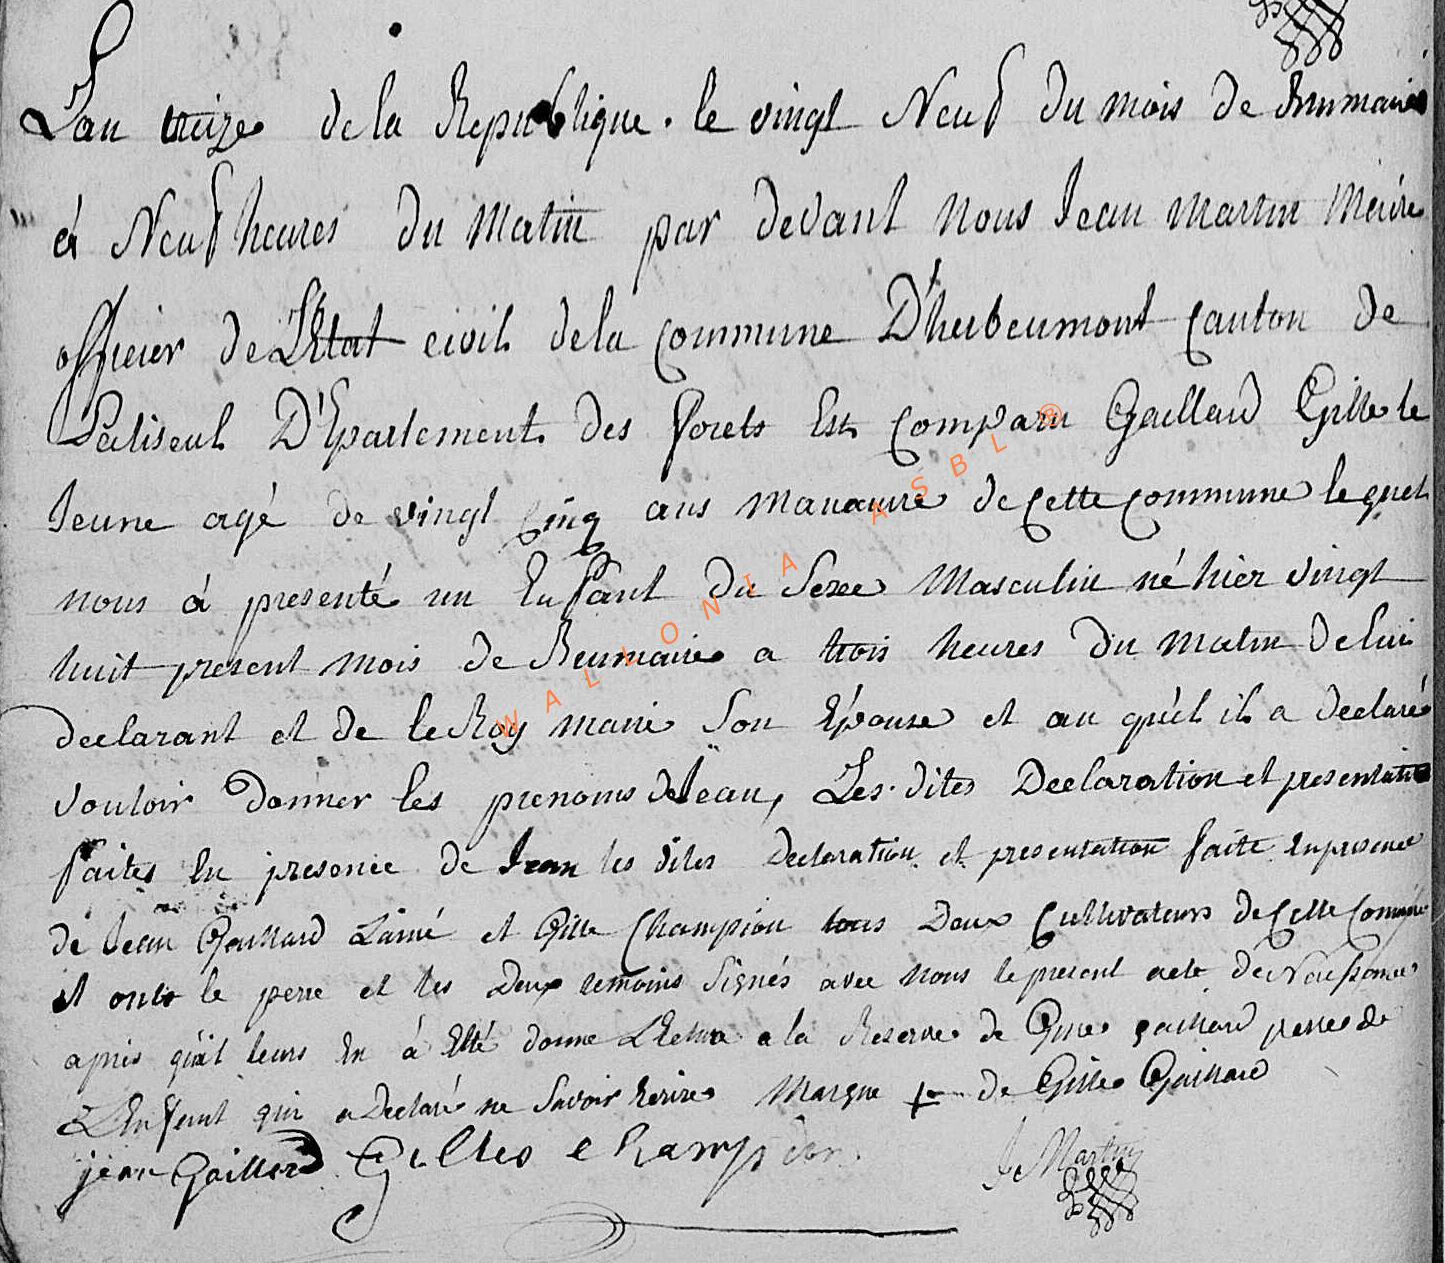 L'an treize de la Republique. le vingt Neuf du mois de Brumaire
à Neuf heures du Matin par devant nous Jean Martin Meire
officier de L'Etat civil de la commune D'herbeumont canton de
Paliseul D'Epartement des forets Est comparu Gaillard Gille le
Jeune agé de vingt cinq ans Manauvre de cette commune lequel
nous à presenté un Enfant du Sexe Masculin né hier vingt
huit present mois de Brumaire a trois heures du Matin de lui
declarant et de le Roy Marie Son Epouse et au quel il a declaré
vouloir donner les prenoms de Jean, Les dites Declaration et presentation
faites En presence de Jean les dites Declaration et presentation faite En presence
de Jean Gaillard L'ainé et Gille Champion tous Deux Cultivateurs de Cette Commune
et onts le pere et les Deux temoins Signés avec nous le present acte de Naissance
apries qu'il leurs En à Etté donne Lecture a la Reserve de Gille gaillard perre de
L'Enfant qui a Declaré ne Savoir Ecrire Marque + de Gille Gaillard
jean Gaillard Gilles Champion J Martin
WALLONIA ASBL ®